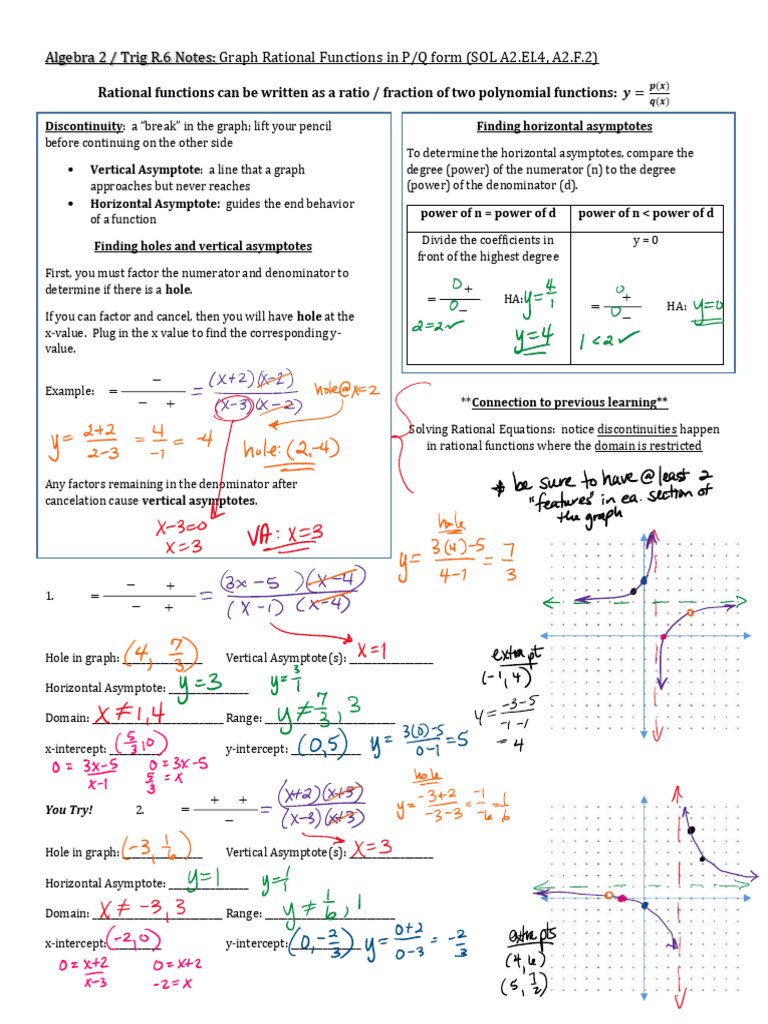 Algebra 2 / Trig R.6 Notes: Graph Rational Functions in P/Q form (SOL A2.EI.4, A2.F.2)
Rational functions can be written as a ratio / fraction of two polynomial functions: y = p(x)/q(x)
Discontinuity: a "break" in the graph; lift your pencil
before continuing on the other side
• Vertical Asymptote: a line that a graph
approaches but never reaches
• Horizontal Asymptote: guides the end behavior
of a function
Finding holes and vertical asymptotes
First, you must factor the numerator and denominator to
determine if there is a hole.
If you can factor and cancel, then you will have hole at the
x-value. Plug in the x value to find the corresponding y-
value.
Example: = − / − + = (x+2)(x-2) / (x-3)(x-2) hole@x=2
y = 2+2 / 2-3 = 4/-1 = -4 hole: (2,-4)
Any factors remaining in the denominator after
cancelation cause vertical asymptotes.
x-3=0
x=3
VA: x=3
Finding horizontal asymptotes
To determine the horizontal asymptotes, compare the
degree (power) of the numerator (n) to the degree
(power) of the denominator (d).
power of n = power of d power of n < power of d
Divide the coefficients in
front of the highest degree
y = 0
= + / − HA: y=4/1
2=2✓ y=4
= + / − HA: y=0
1<2✓
**Connection to previous learning**
Solving Rational Equations: notice discontinuities happen
in rational functions where the domain is restricted
* be sure to have @ least 2
"features" in ea. section of
the graph
1. = − + / − + = (3x-5)(x-4) / (x-1)(x-4)
hole
y = 3(4)-5 / 4-1 = 7/3
Hole in graph: (4, 7/3) Vertical Asymptote(s): x=1
Horizontal Asymptote: y=3 y=3/1
Domain: x≠1,4 Range: y≠7/3, 3
x-intercept: (5/3,0) y-intercept: (0,5) y = 3(0)-5 / 0-1 = 5
0 = 3x-5 / x-1 0=3x-5
5/3 = x
extra pt
(-1,4)
y = -3-5 / -1-1
= 4
You Try! 2. = + + / − = (x+2)(x+3) / (x-3)(x+3)
hole
y = -3+2 / -3-3 = -1/-6 = 1/6
Hole in graph: (-3, 1/6) Vertical Asymptote(s): x=3
Horizontal Asymptote: y=1 y=1/1
Domain: x≠-3,3 Range: y≠1/6, 1
x-intercept: (-2,0) y-intercept: (0,-2/3) y = 0+2 / 0-3 = -2/3
0 = x+2 / x-3 0=x+2
-2=x
extra pts
(4,6)
(5, 7/2)